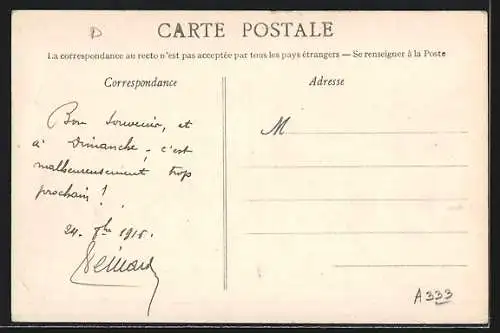 D
CARTE POSTALE
La correspondance au recto n'est pas acceptée par tous les pays étrangers — Se renseigner à la Poste
Correspondance
Adresse
Bon souvenir, et
à Dimanche, c'est
malheureusement trop
prochain !
M
24. 1915.
A333